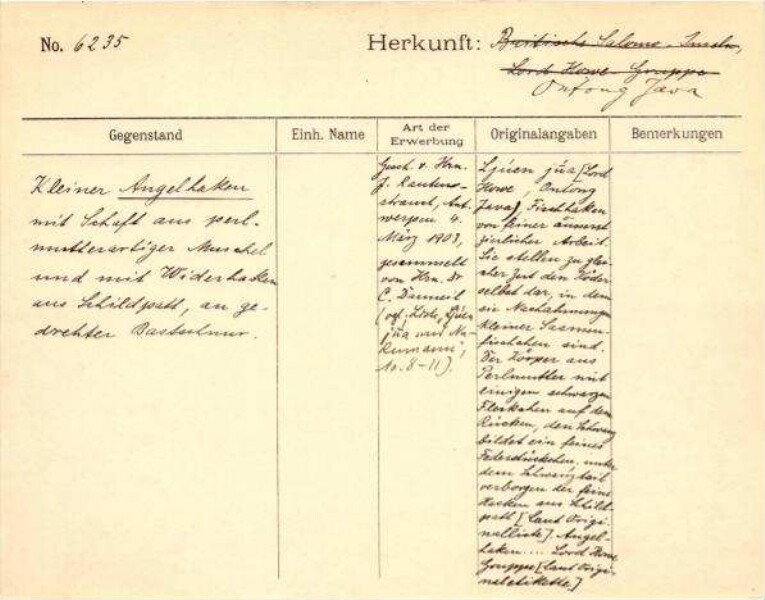 No. 6235
Herkunft: Britische Salomo-Inseln,
Lord Howe-Gruppe
Ontong Java
Gegenstand
Einh. Name
Art der Erwerbung
Originalangaben
Bemerkungen
Kleiner Angelhaken
mit Schaft aus perl-
mutterartiger Muschel
und mit Widerhaken
aus Schildpatt, an ge-
drehter Bastschnur.
Gesch. v. Hrn.
J. Rauten-
strauch, Ant-
werpen 4.
März 1903,
gesammelt
von Hrn. Dr
C.
(vgl. Liste,
jüa und Nu-
kumanu,
No. 8-11).
Ljúen jüa [Lord
Howe, Ontong
Java] Fischhaken
von feiner äusserst
zierlicher Arbeit.
Sie stellen zu glei-
cher Zeit den Köder
selbst dar, in dem
sie Nachahmungen
kleiner
fischchen sind.
Der Körper aus
Perlmutter mit
einigen schwarzen
Fleckchen auf dem
Rücken, den Schwanz
bildet ein feines
unter
dem Schwanzteil
verborgen der feine
Hacken aus Schild-
patt [laut Origi-
nalliste]. Angel-
haken.... Lord Howe
Gruppe [laut Origi-
naletikette.]